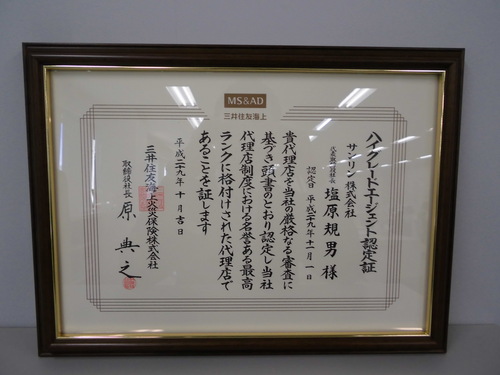 MS&AD
三井住友海上
ハイグレードエージェント認定証
サンリン株式会社
代表取締役社長 塩原規男様
認定日 平成二十九年十一月一日
貴代理店を当社の厳格なる審査に
基づき頭書のとおり認定し当社
代理店制度における名誉ある最高
ランクに格付けされた代理店で
あることを証します
平成二十九年十月吉日
三井住友海上火災保険株式会社
取締役社長 原典之